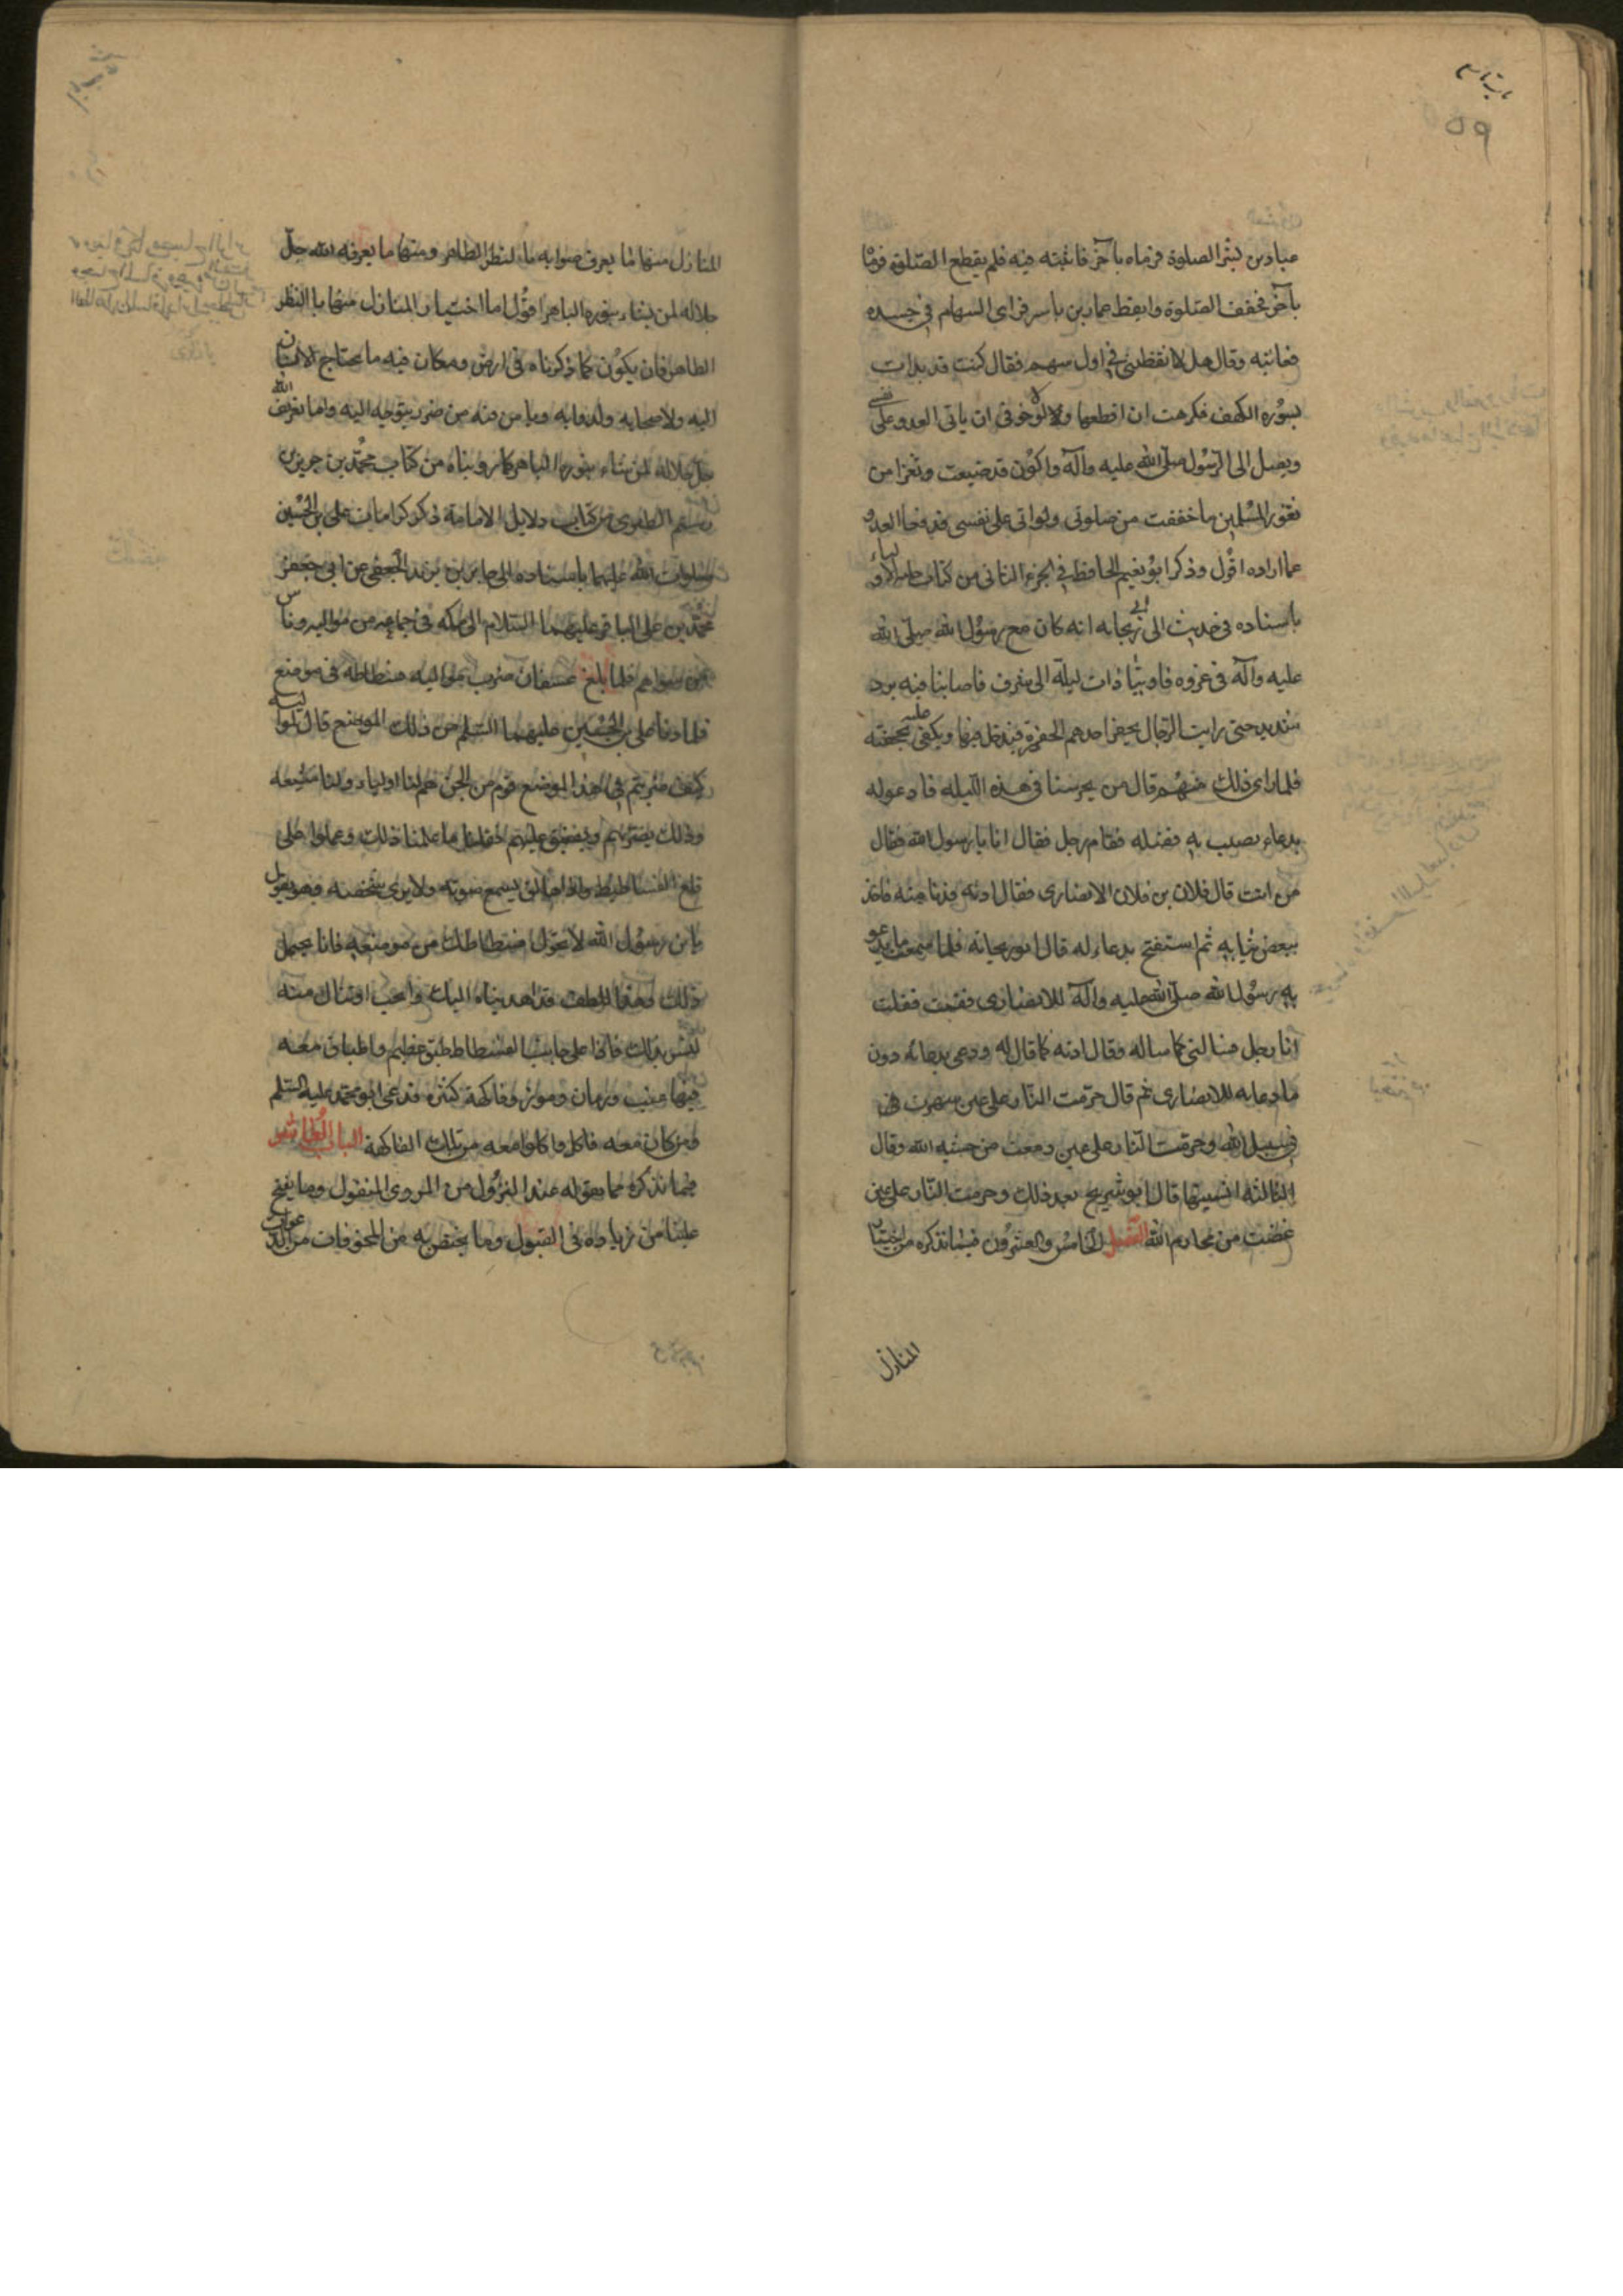 باب تاسع
٥٩
عباد بن بشر الصلوة فرماه بآخر فاثبته فيه فلم يقطع الصلوة فرماه
بآخر فخفف الصلوة وايقظ عمار بن ياسر فراى السهام في جسده
فعاتبه وقال هل لا ايقظتني في اول سهم فقال كنت قد بدات
بسوره الكهف فكرهت ان اقطعها ولولا خوفى ان ياتى العدو على نفسى
ويصل الى الرسول صلى الله عليه وآله واكون قد ضيعت ثغرا من
ثغور المسلمين ما خففت من صلوتى ولو اتى على نفسى فدفعا العدو
عما اراده اقول وذكر ابو نعيم الحافظ في الجزء الثانى من كتاب حلية الاولياء
باسناده فى حديث الى ابى ريحانه انه كان مع رسول الله صلى الله
عليه وآله فى غزوه فاوينا ذات ليلة الى شرف فاصابنا فيه برد
شديد حتى رايت الرجال يحفر احدهم الحفرة فيدخل فيها ويكفى عليه بحجفته
فلما راى ذلك منهم قال من يحرسنا فى هذه الليله فادعو له
بدعاء يصيب به فضله فقام رجل فقال انا يا رسول الله فقال
من انت قال فلان بن فلان الانصارى فقال ادنه فدنا منه فاخذ
ببعض ثيابه ثم استفتح بدعاء له قال ابو ريحانه فلما سمعت ما يدعو
به رسول الله صلى الله عليه وآله للانصارى فقمت فقلت
انا رجل فسالنى كما ساله وقال ادنه كما قال له ودعى بدعائه دون
ما دعا به للانصارى ثم قال حرمت النار على عين سهرت
فى سبيل الله وحرمت النار على عين دمعت من خشيه الله وقال
الثالثه انسيتها قال ابو شريح بعد ذلك وحرمت النار على عين
غضت من محارم الله الفصل الخامس والعشرون فيما نذكره من اختيار
المنازل
المنازل منها ما يعرف صوابه بالنظر الظاهر ومنها ما يعرفه الله جل
جلاله لمن يشاء بنوره الباهر اقول اما اختيار المنازل منها بالنظر
الظاهر فان يكون كما ذكرناه فى ارض ومكان فيه ما يحتاج الانسان
اليه ولاصحابه ولدوابه ويامن منه من ضرر يتوجه اليه واما تعريف الله
جل جلاله لمن يشاء بنوره الباهر كما رويناه من كتاب محمد بن جرير بن
رستم الطبرى من كتاب دلايل الامامة ذكر كرامات على بن الحسين
صلوات الله عليهما باسناده الى جابر بن يزيد الجعفى عن ابى جعفر
محمد بن على الباقر عليهما السلام الى مكه فى جماعه من مواليه وناس
من سواهم فلما بلغ عسفان ضرب مواليه فسطاطه فى موضع
فلما دنا على بن الحسين عليهما السلم من ذلك الموضع قال لمواليه
كيف ضربتم فى هذا الموضع قوم من الجن هم لنا اولياء ولنا شيعه
وذلك يضر بهم ويضيق عليهم فقلنا ما علمنا ذلك وعملوا على
قلع الفسطاط واذا هاتف يسمع صوته ولا يرى شخصه وهو يقول
يابن رسول الله لا تحول فسطاطك من موضعه فانا نحتمل
ذلك وهذا اللطف قد اهديناه اليك ونحب ان تنال منه
لنسر بذلك فاذا على جانب الفسطاط طبق عظيم واطباق معه
فيها عنب ورمان وموز وفاكهة كثره فدعى ابو محمد عليه السلم
ومن كان معه فاكل واكلوا معه من تلك الفاكهة الباب العاشر
فيما نذكره مما يقوله عند النزول من المروى المنقول وما يفتح
علينا من زياده فى القبول وما يختص به من المخوفات من الدعوات